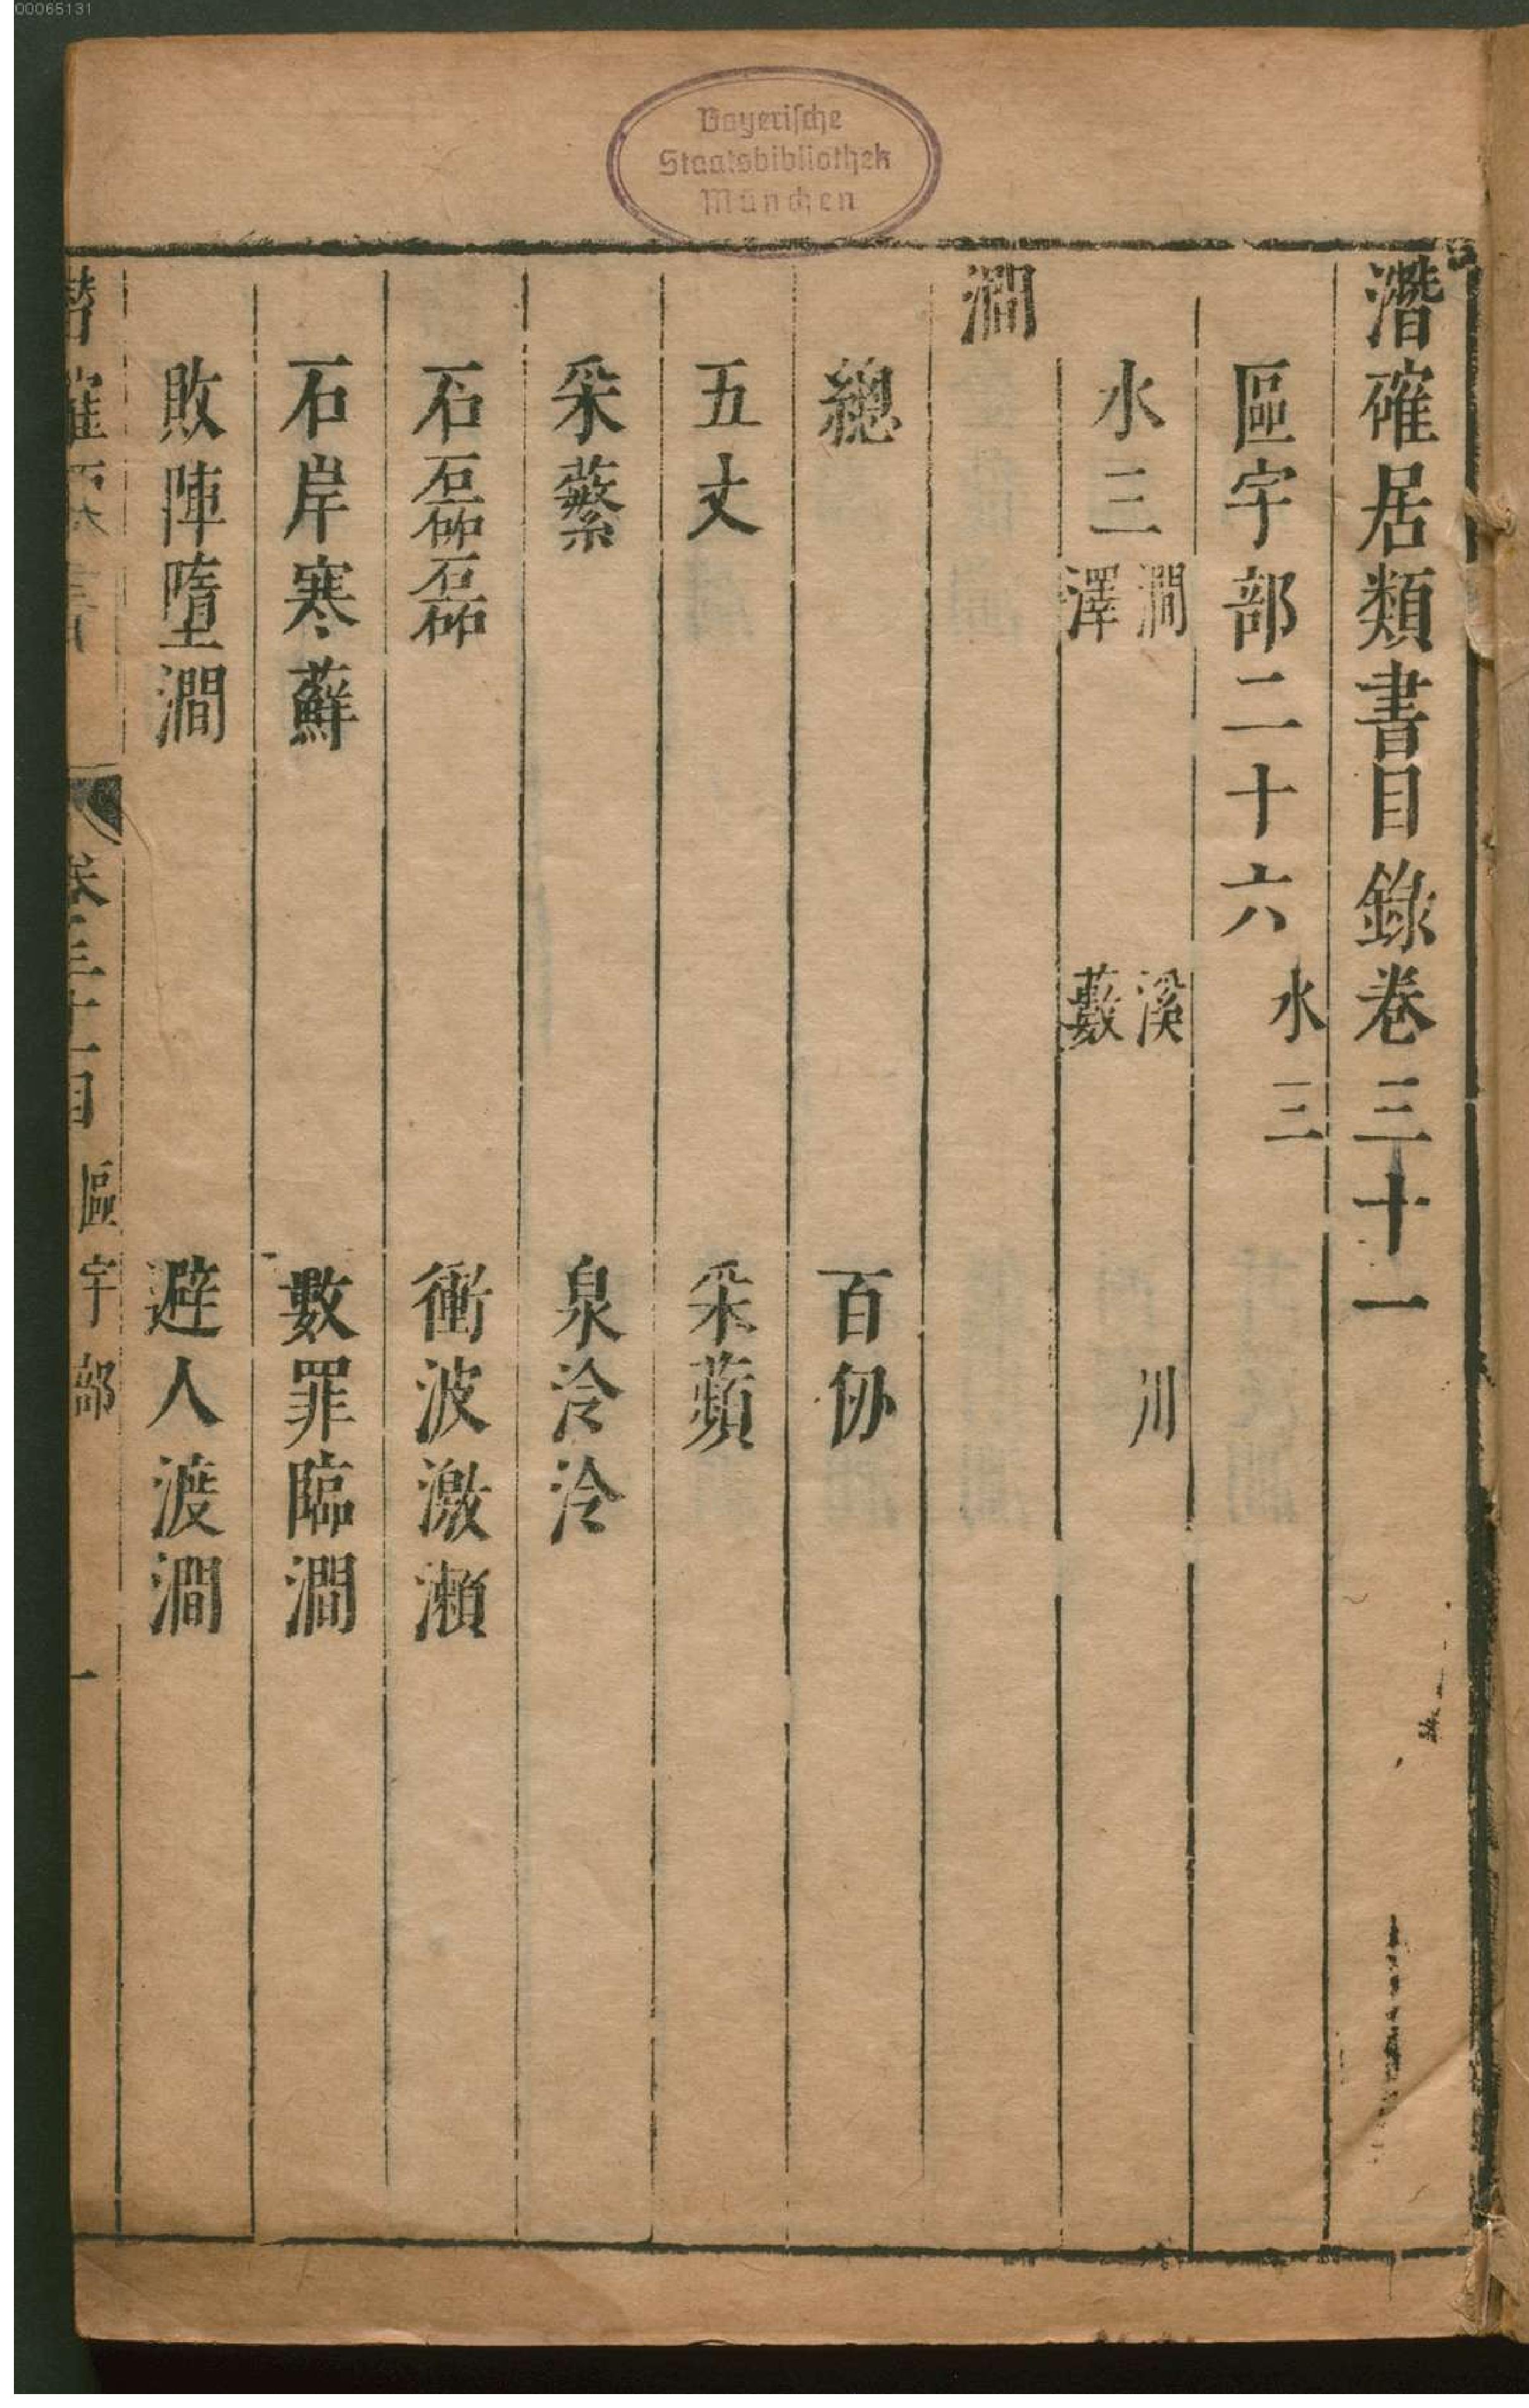 00065131
Bayerische
Staatsbibliothek
München
潛確居類書目錄卷三十一
區宇部二十六 水三
水三 澗 溪 川
澤 藪
澗
總 百仞
五丈 采蘋
采蘩 泉泠泠
石磊磊 衝波激瀨
石岸寒蘚 數罪臨澗
敗陣墮澗 避人渡澗
卷三十一目 區宇部 一